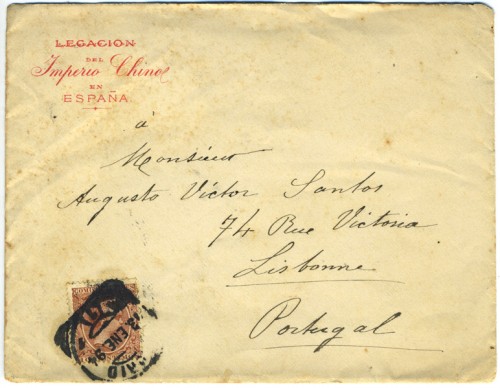 LEGACION
DEL
Imperio Chino
EN
ESPAÑA
à
Monsieur
Augusto Victor Santos
74 Rue Victoria
Lisbonne
Portugal
ENE 94